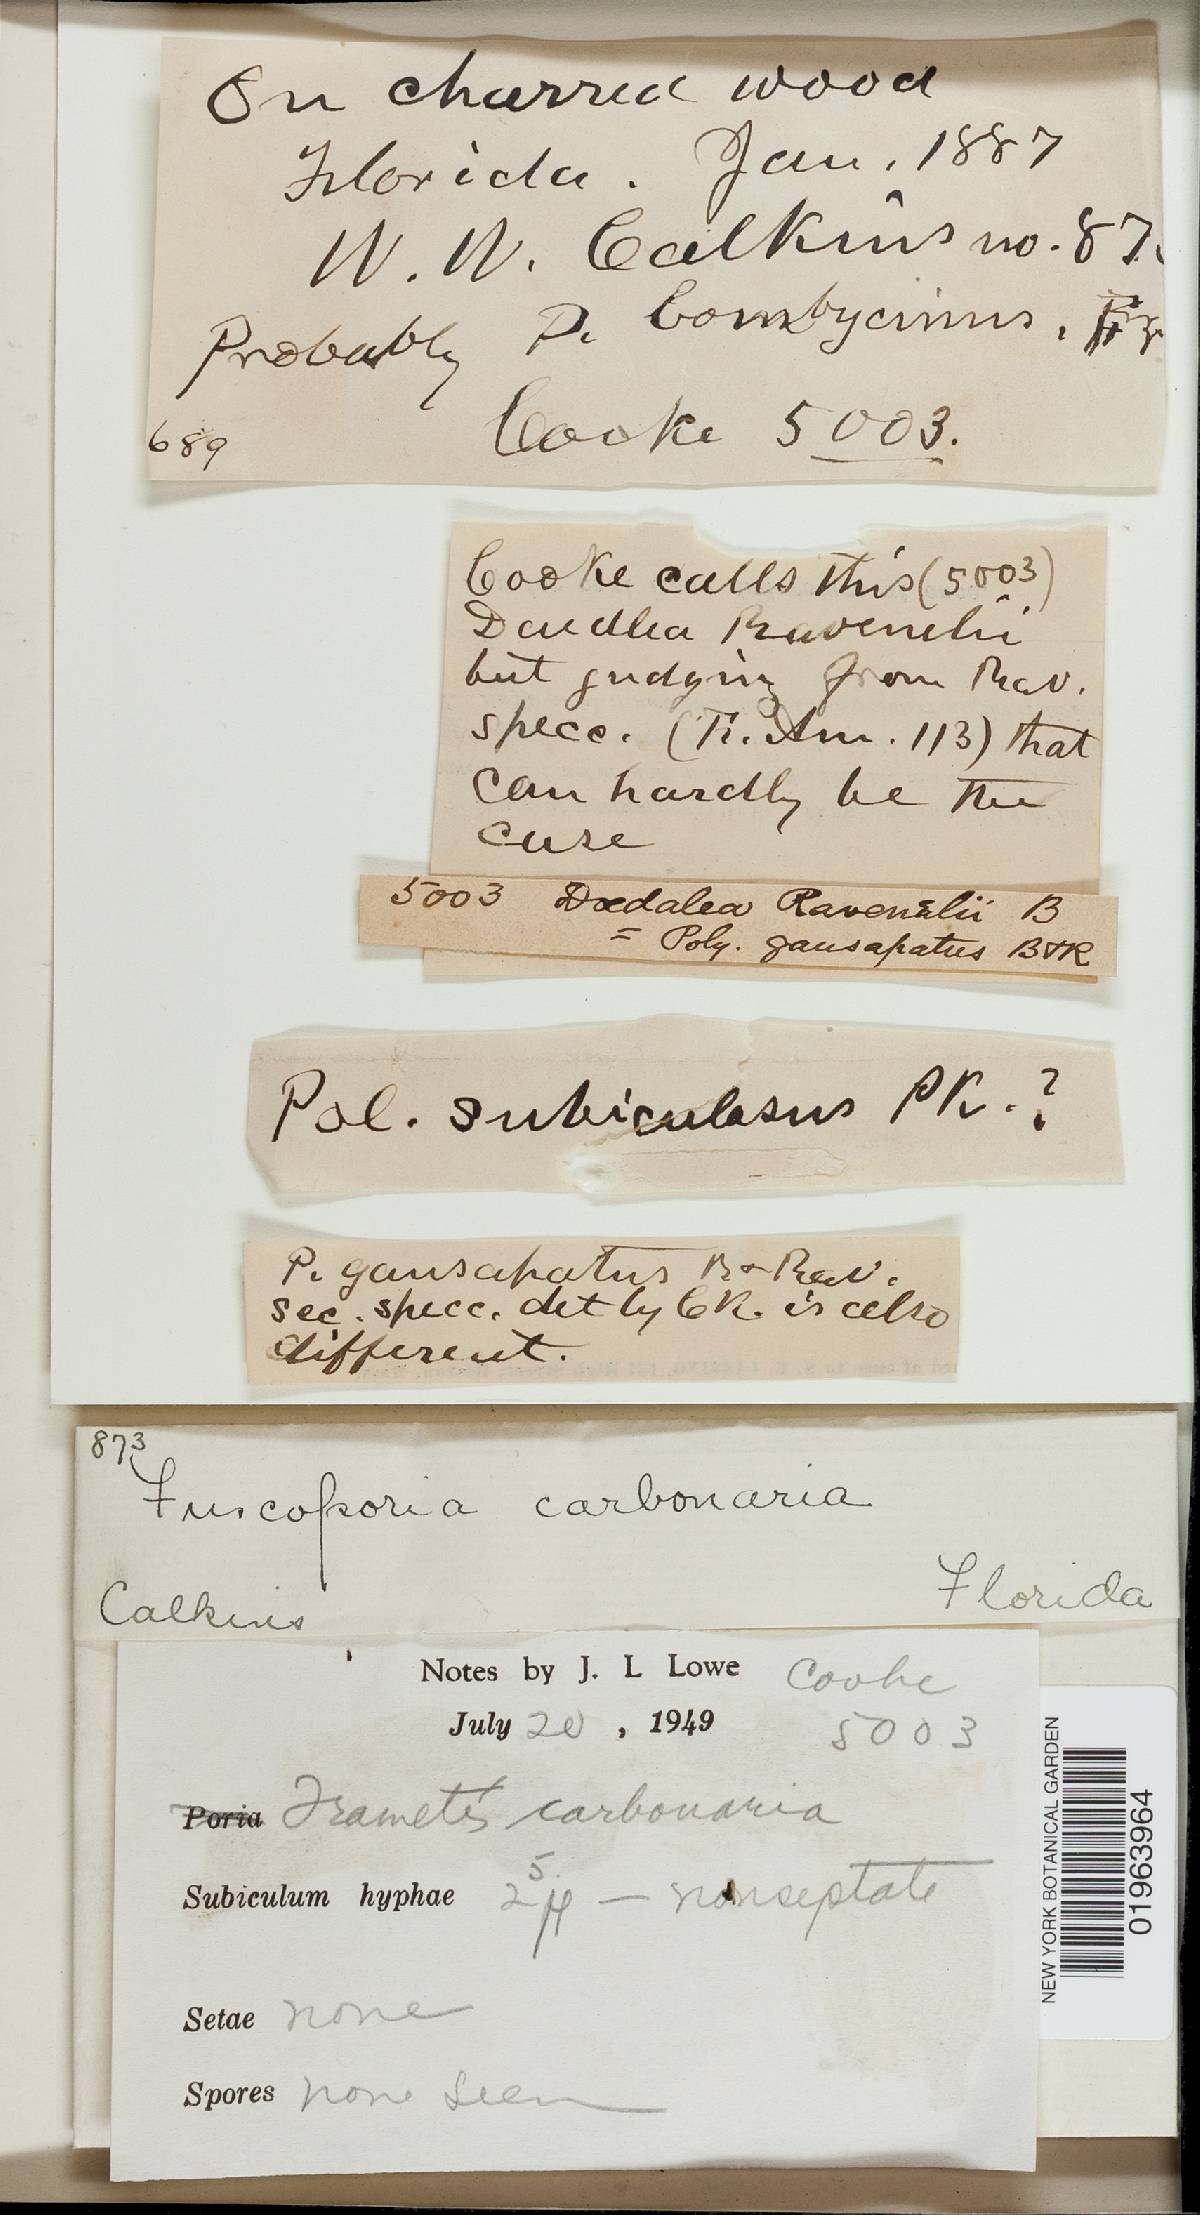 On charred wood
Florida. Jan. 1887
W. W. Calkins no. 87
Probably P. bombycinus, Fr
689
Cooke 5003.
Cooke calls this (5003)
Daedlea Ravenelii
but gudging from Rav.
specc. (F. Am. 113) that
can hardly be the
case
5003 Dædalea Ravenelii B
= Poly. gausapatus B & R
Pol. subiculosus PK. ?
P. gausapatus B & Rav.
sec. specc. det by CK. is also
different.
873
Fuscoporia carbonaria
Calkins Florida
Notes by J. L Lowe Cooke
July 20, 1949 5003
Poria Trametes carbonaria
Subiculum hyphae 2.5 μ — nonseptate
Setae none
Spores none seen
NEW YORK BOTANICAL GARDEN
01963964